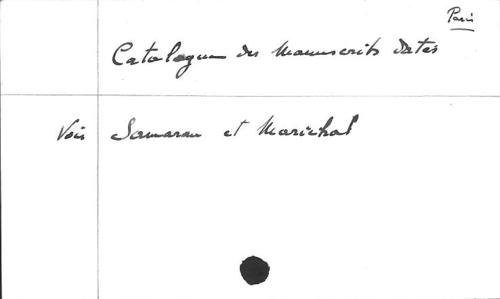 Paris
Catalogue des Manuscrits datés
Voir Samaran et Marichal